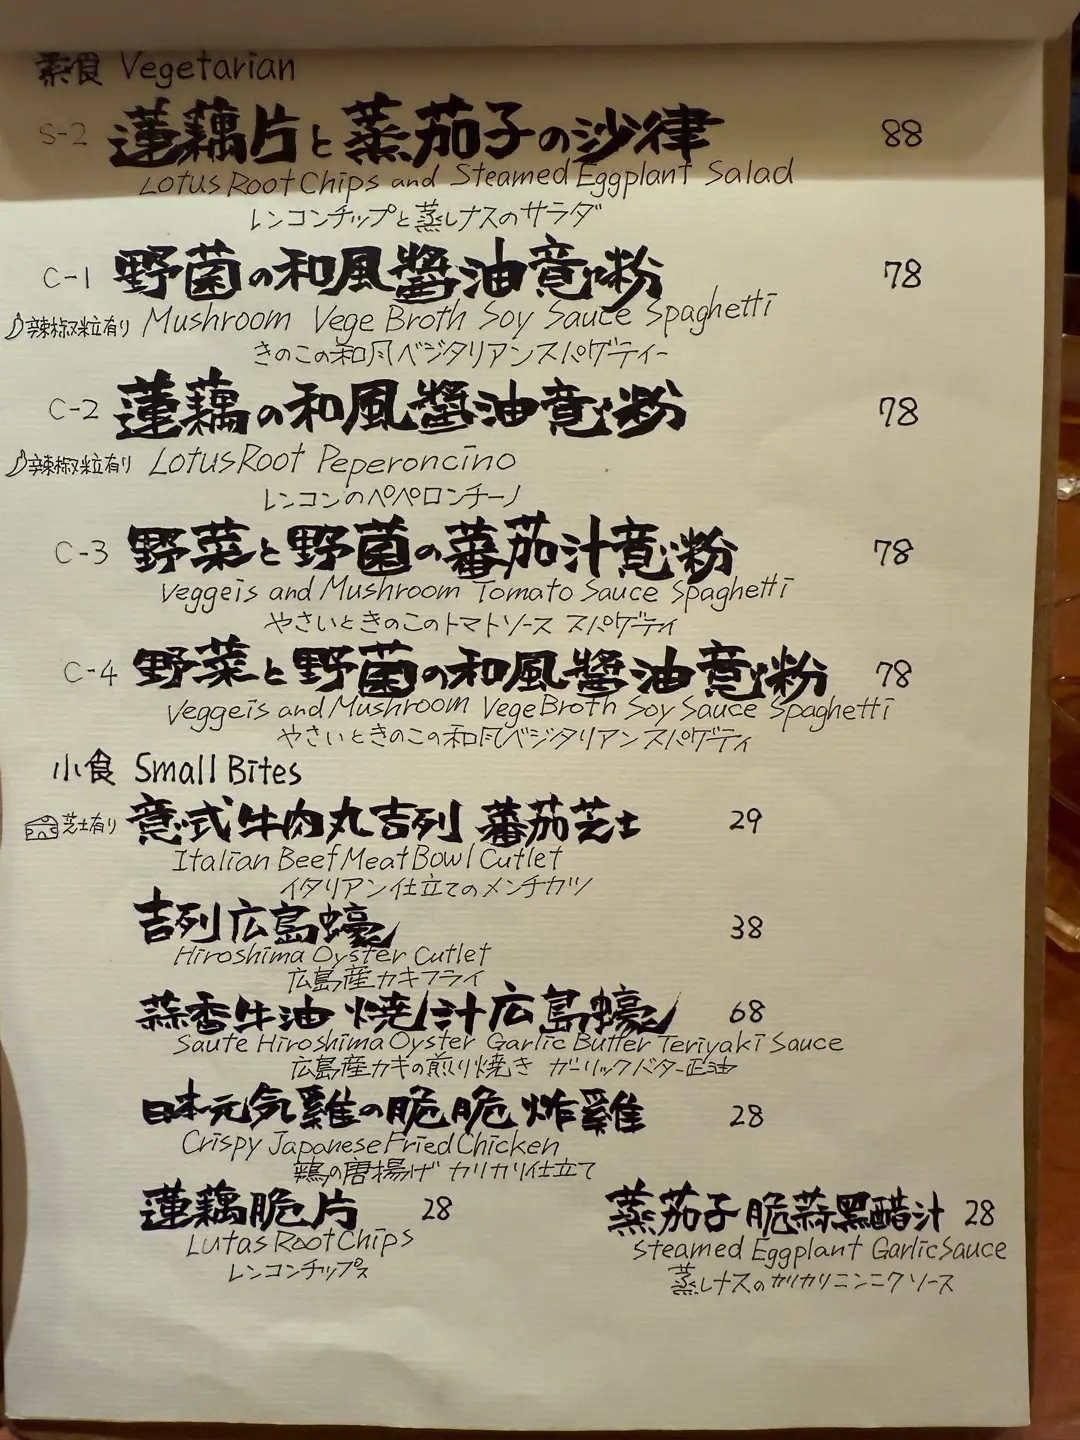 素食 Vegetarian
S-2 蓮藕片と蒸茄子の沙律 88
Lotus Root Chips and Steamed Eggplant Salad
レンコンチップと蒸しナスのサラダ
C-1 野菌の和風醬油意粉 78
辣椒粒有り Mushroom Vege Broth Soy Sauce Spaghetti
きのこの和風ベジタリアンスパゲティー
C-2 蓮藕の和風醬油意粉 78
辣椒粒有り Lotus Root Peperoncino
レンコンのペペロンチーノ
C-3 野菜と野菌の蕃茄汁意粉 78
Veggeis and Mushroom Tomato Sauce Spaghetti
やさいときのこのトマトソース スパゲティ
C-4 野菜と野菌の和風醬油意粉 78
Veggeis and Mushroom Vege Broth Soy Sauce Spaghetti
やさいときのこの和風ベジタリアンスパゲティ
小食 Small Bites
芝士有り 意式牛肉丸吉列 蕃茄芝士 29
Italian Beef Meat Bowl Cutlet
イタリアン仕立てのメンチカツ
吉列広島蠔 38
Hiroshima Oyster Cutlet
広島産カキフライ
蒜香牛油 焼汁広島蠔 68
Saute Hiroshima Oyster Garlic Butter Teriyaki Sauce
広島産カキの煎り焼き ガーリックバター正油
日本元気雞の脆脆炸雞 28
Crispy Japanese Fried Chicken
鶏の唐揚げ カリカリ仕立て
蓮藕脆片 28
Lutas Root Chips
レンコンチップス
蒸茄子脆蒜黑醋汁 28
Steamed Eggplant Garlic Sauce
蒸しナスのカリカリニンニクソース